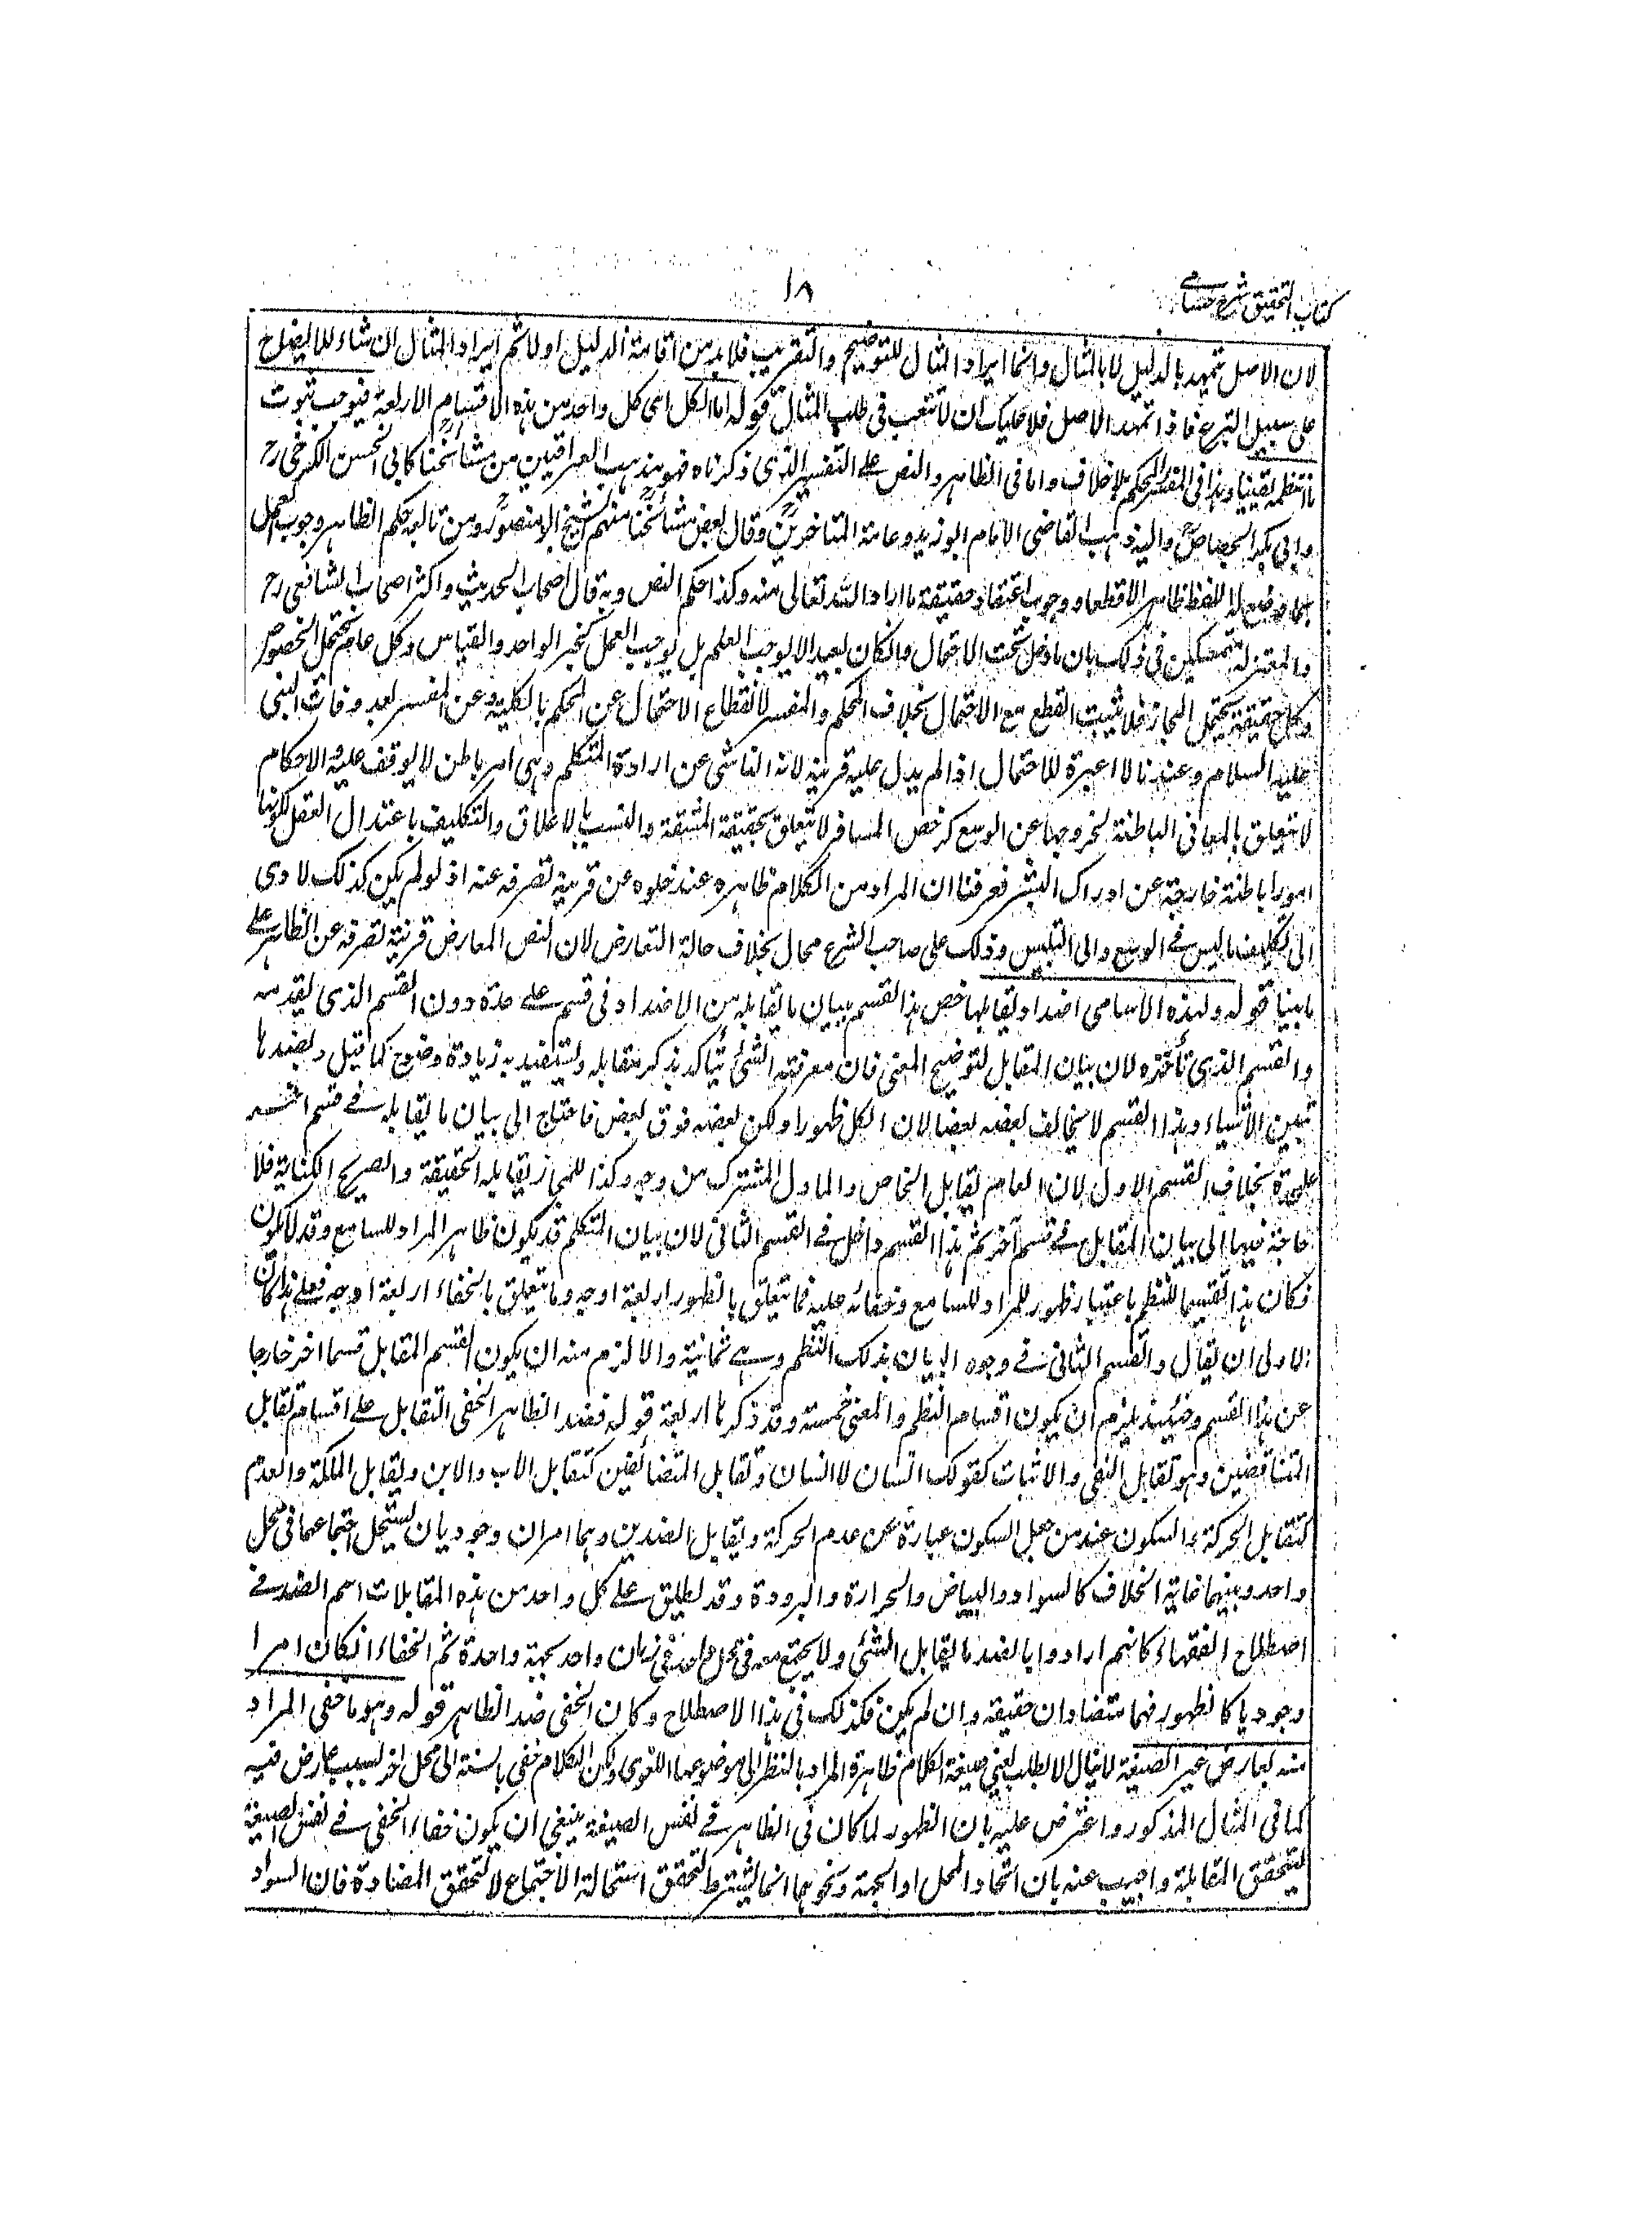 كتاب التحقيق شرح حسامي
١٨
لان الاصل تمهيد بالدليل لا بالمثال وانما ايراد المثال للتوضيح والتقريب فلا بد من اقامة الدليل اولا ثم ايراد المثال ان شاء للايضاح
على سبيل التبرع فاذا تمهد الاصل فلا عليك ان لا تتعب في طلب المثال قوله اما الكل اى كل واحد من هذه الاقسام الاربعة فيوجب ثبوت
ما انتظمه يقينا وهذا في المفسر والمحكم بلا خلاف واما في الظاهر والنص على التفسير الذى ذكرناه فهو مذهب العراقيين من مشائخنا كابى الحسن الكرخى رح
وابى بكر الجصاص واليه ذهب القاضى الامام ابو زيد وعامة المتاخرين وقال بعض مشائخنا منهم الشيخ ابو منصور ومن تابعه حكم الظاهر وجوب العمل
بما وضع له اللفظ ظاهرا لا قطعا ووجوب اعتقاد حقيقة ما اراد الله تعالى منه وكذا حكم النص وبه قال اصحاب الحديث واكثر اصحاب الشافعى رح
والمعتزلة متمسكين في ذلك بان ما دخل تحت الاحتمال وان كان بعيدا لا يوجب العلم بل يوجب العمل كخبر الواحد والقياس وكل عام يحتمل الخصوص
وكل حقيقة يحتمل المجاز فلا يثبت القطع مع الاحتمال بخلاف المحكم والمفسر لانقطاع الاحتمال عن المحكم بالكلية وعن المفسر بعد وفات النبى
عليه السلام وعندنا لا عبرة للاحتمال اذا لم يدل عليه قرينة لانه الناشى عن ارادة المتكلم وهى امر باطن لا يوقف عليه والاحكام
لا تتعلق بالمعانى الباطنة لخروجها عن الوسع كرخص المسافر لا تتعلق بحقيقة المشقة والنسب بالاعلاق والتكليف باعتدال العقل لكونها
امورا باطنة خارجة عن ادراك البشر فعرفنا ان المراد من الكلام ظاهره عند خلوه عن قرينة تصرفه عنه اذ لو لم يكن كذلك لادى
الى تكليف ما ليس في الوسع والى التلبيس وذلك على صاحب الشرع محال بخلاف حالة التعارض لان النص المعارض قرينة تصرفه عن الظاهر على
ما بينا قوله ولهذه الاسامى اضداد تقابلها خص هذا القسم ببيان ما تقابله من الاضداد في قسم على حدة دون القسم الذى تقدمه
والقسم الذى تأخره لان بيان المقابل لتوضيح المعنى فان معرفة الشئ يتأكد بذكر مقابله وليستفيد به زيادة وضوح كما قيل وبضدها
تتبين الاشياء وهذا القسم لا يخالف بعضه بعضا لان الكل ظهورا ولكن بعضه فوق بعض فاحتاج الى بيان ما يقابله في قسم اخر
عليحدة بخلاف القسم الاول لان العام يقابل الخاص والماول المشترك من وجه وكذا المجاز يقابله الحقيقة والصريح الكناية فلا
حاجة فيها الى بيان المقابل في قسم آخر ثم هذا القسم داخل في القسم الثانى لان بيان المتكلم قد يكون ظاهر المراد للسامع وقد لا يكون
فكان هذا تقسيما للنظم باعتبار ظهور المراد للسامع وخفائه عليه فما تتعلق بالظهور اربعة اوجه وما تتعلق بالخفاء اربعة اوجه فعلى هذا كان
الاولى ان يقال والقسم الثانى في وجوه البيان بذلك النظم وهى ثمانية والا لزم منه ان يكون القسم المقابل قسما اخر خارجا
عن هذا القسم وحينئذ يلزم ان يكون اقسام النظم والمعنى خمسة وقد ذكرها اربعة قوله فضد الظاهر الخفى التقابل على اقسام تقابل
المتناقضين وهو تقابل النفى والاثبات كقولك انسان لا انسان وتقابل المتضائفين كتقابل الاب والابن وتقابل الملكة والعدم
كتقابل الحركة والسكون عند من جعل السكون عبارة عن عدم الحركة وتقابل الضدين وهما امران وجوديان يستحيل اجتماعهما في محل
واحد وبينهما غاية الخلاف كالسواد والبياض والحرارة والبرودة وقد يطلق على كل واحد من هذه المقابلات اسم الضد في
اصطلاح الفقهاء كانهم ارادوا بالضد ما يقابل الشئ ولا يجتمع معه في محل واحد في زمان واحد بجهة واحدة ثم الخفاء ان كان امرا
وجوديا كالظهور فهما متضادان حقيقة وان لم يكن فكذلك في هذا الاصطلاح وكان الخفى ضد الظاهر قوله وهو ما خفى المراد
منه بعارض غير الصيغة لا ينال الا بالطلب يعنى صيغة الكلام ظاهرة المراد بالنظر الى موضوعها اللغوى ولكن الكلام خفى بالنسبة الى محل اخر بسبب عارض فيه
كما فى المثال المذكور واعترض عليه بان الظهور لما كان فى الظاهر في نفس الصيغة ينبغى ان يكون خفاء الخفى في نفس الصيغة
ليتحقق المقابلة واجيب عنه بان اتحاد المحل او الجهة ونحوهما انما يشترط لتحقق استحالة الاجتماع لا لتحقق المضادة فان السواد